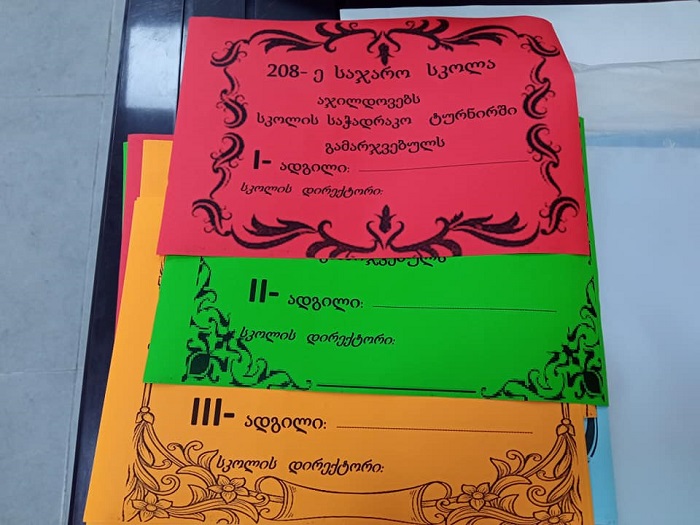 208- ე საჯარო სკოლა
აჯილდოვებს
სკოლის საჭადრაკო ტურნირში
გამარჯვებულს
I- ადგილი:
სკოლის დირექტორი:
გამარჯვებულს
II- ადგილი:
სკოლის დირექტორი:
III- ადგილი:
სკოლის დირექტორი: